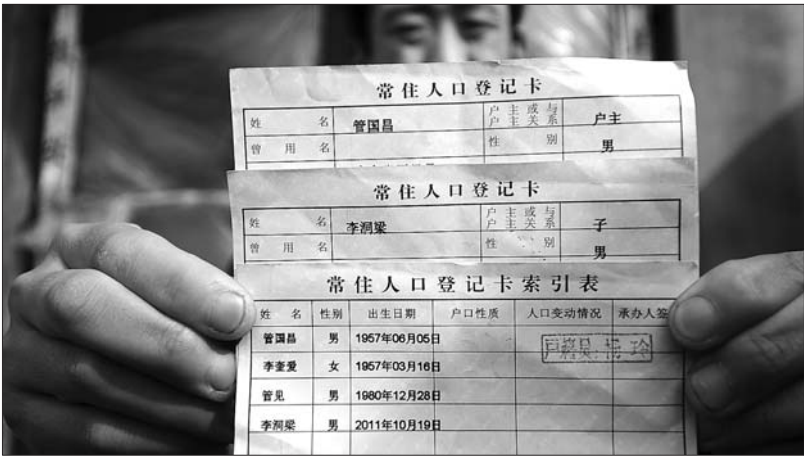 常住人口登记卡
姓 名 管国昌 户主或与户主关系 户主
曾用名 性别 男
常住人口登记卡
姓 名 李润梁 户主或与户主关系 子
曾用名 性别 男
常住人口登记卡索引表
姓 名 性别 出生日期 户口性质 人口变动情况 承办人签
管国昌 男 1957年06月05日
李奎爱 女 1957年03月16日
管见 男 1980年12月28日
李润梁 男 2011年10月19日